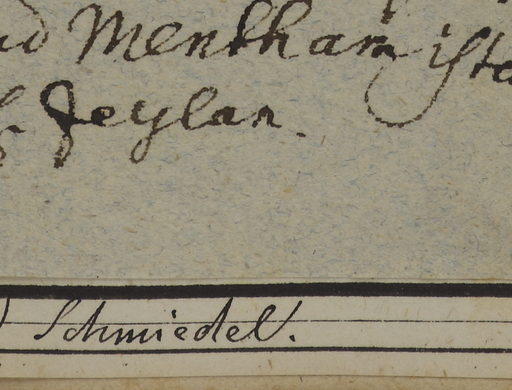 ad Mentham ista
Zeylan.
Schmiedel.